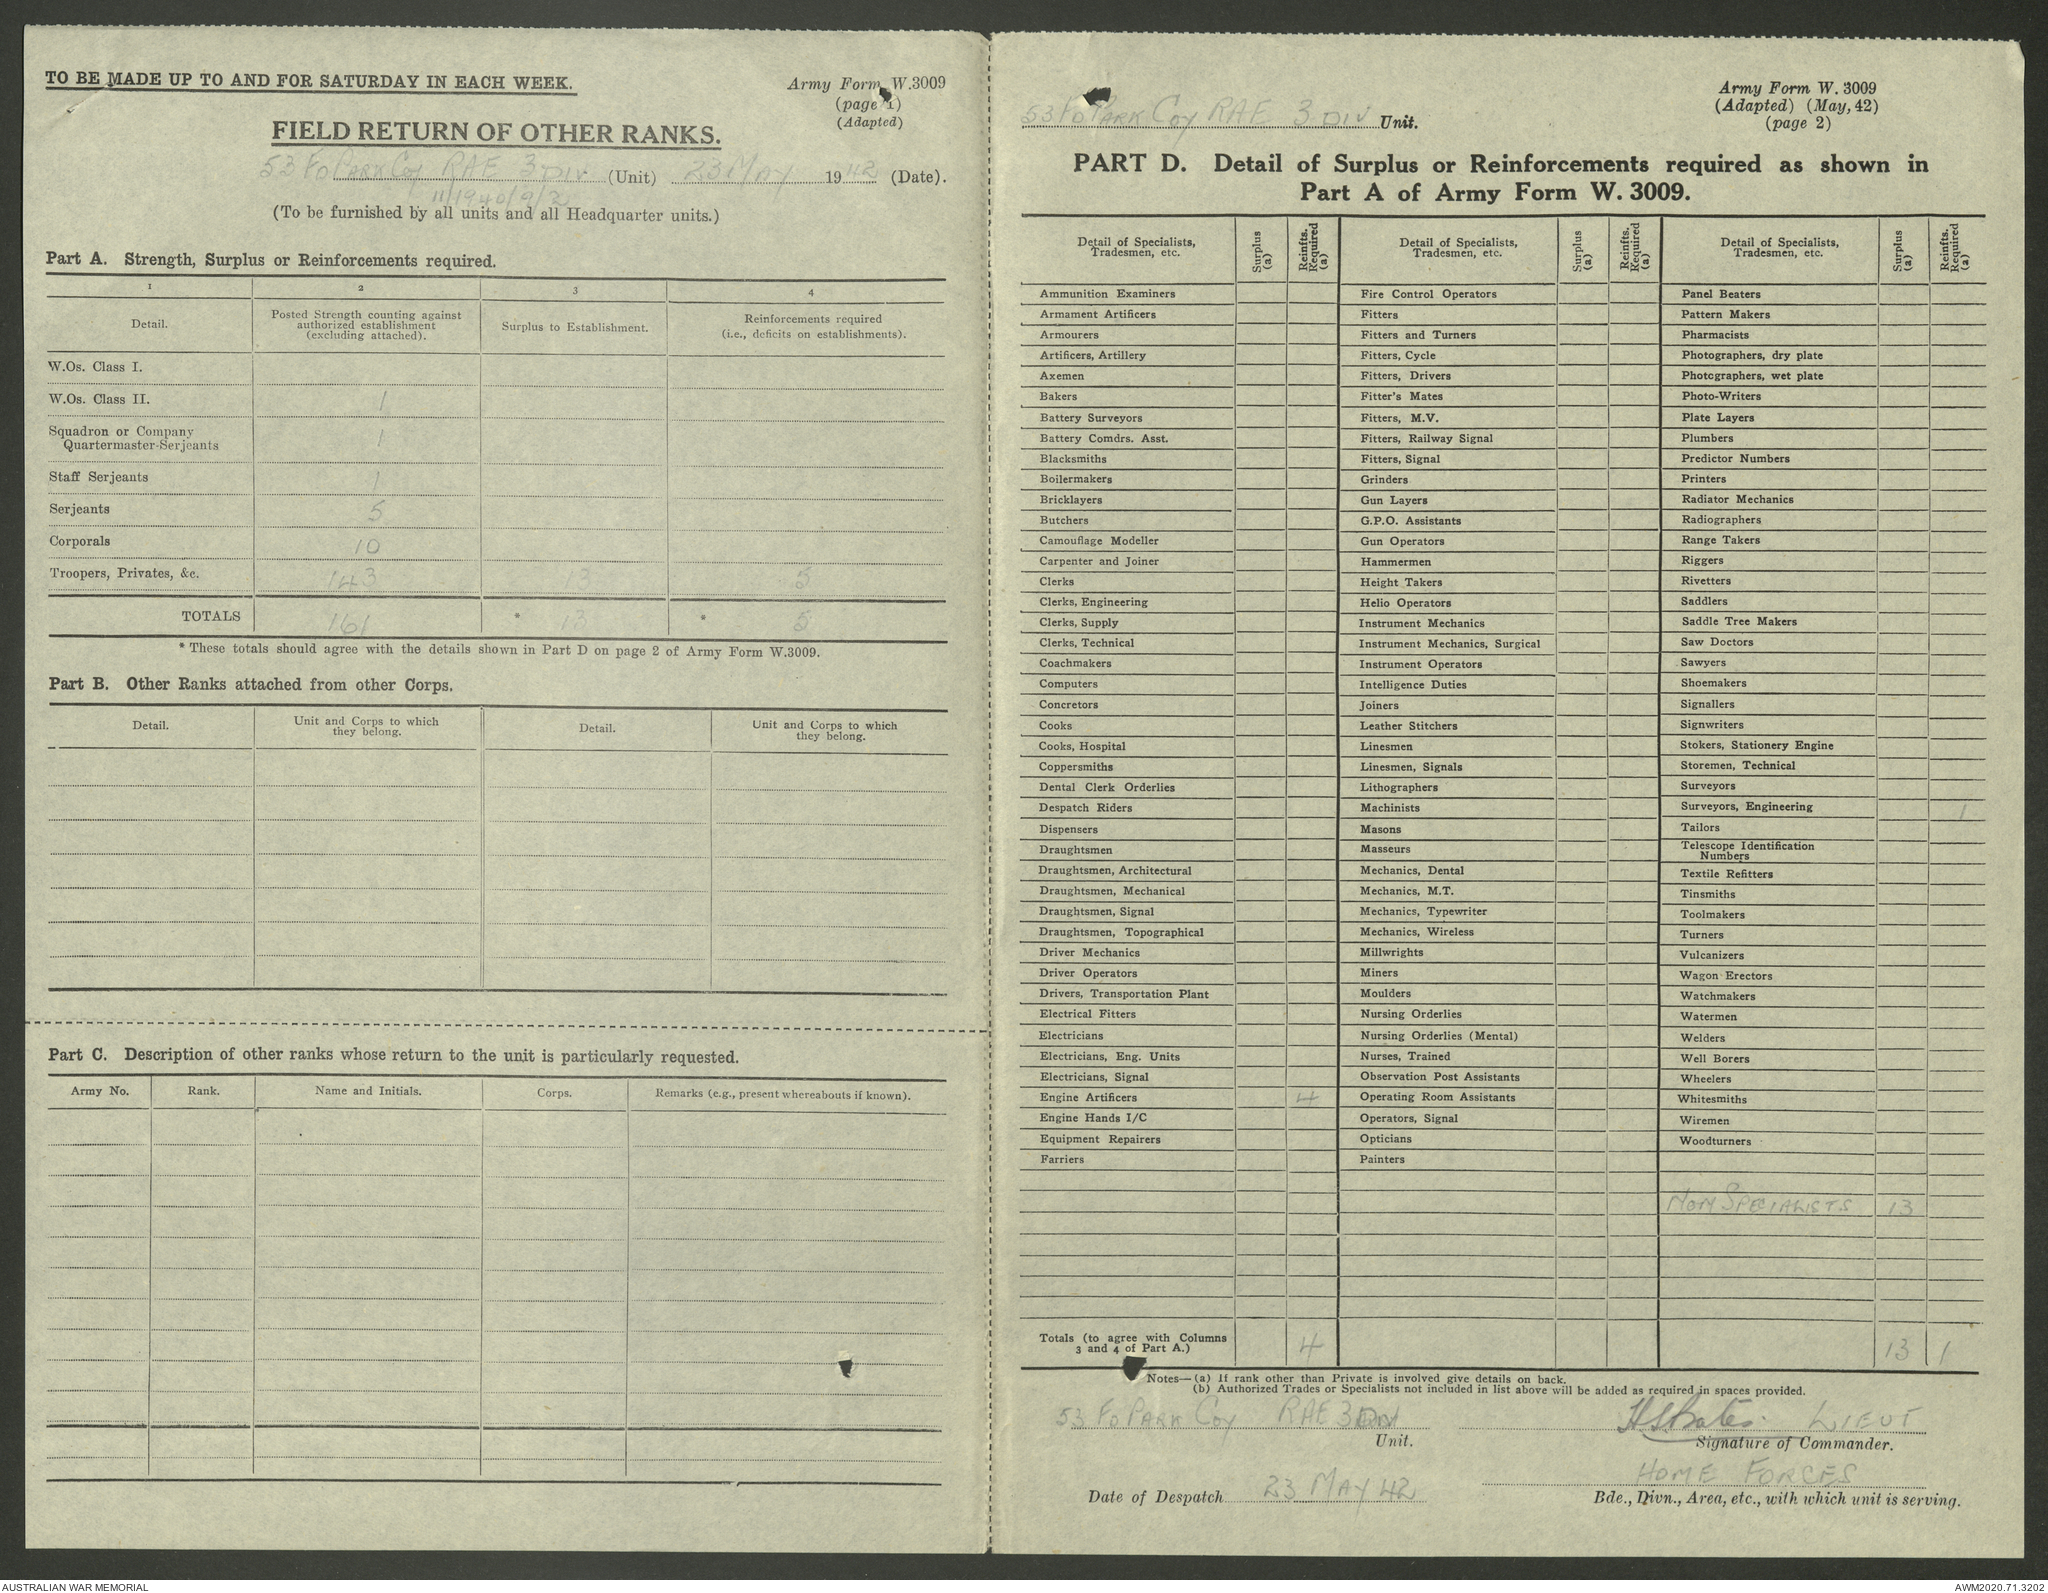 TO BE MADE UP TO AND FOR SATURDAY IN EACH WEEK.
Army Form W.3009
(page 1)
(Adapted)
FIELD RETURN OF OTHER RANKS.
53 FD PARK COY RAE 3 DIV (Unit) 23 MAY 1942 (Date).
11/1940/9/2
(To be furnished by all units and all Headquarter units.)
Part A. Strength, Surplus or Reinforcements required.
1 2 3 4
Detail. Posted Strength counting against authorized establishment (excluding attached). Surplus to Establishment. Reinforcements required (i.e., deficits on establishments).
W.Os. Class I.
W.Os. Class II. 1
Squadron or Company Quartermaster-Serjeants 1
Staff Serjeants 1
Serjeants 5
Corporals 10
Troopers, Privates, &c. 143 13 5
TOTALS 161 * 13 * 5
* These totals should agree with the details shown in Part D on page 2 of Army Form W.3009.
Part B. Other Ranks attached from other Corps.
Detail. Unit and Corps to which they belong. Detail. Unit and Corps to which they belong.
Part C. Description of other ranks whose return to the unit is particularly requested.
Army No. Rank. Name and Initials. Corps. Remarks (e.g., present whereabouts if known).
53 FD PARK COY RAE 3 DIV Unit.
Army Form W. 3009
(Adapted) (May, 42)
(page 2)
PART D. Detail of Surplus or Reinforcements required as shown in
Part A of Army Form W. 3009.
Detail of Specialists, Tradesmen, etc. Surplus (a) Reinfts. Required (a) Detail of Specialists, Tradesmen, etc. Surplus (a) Reinfts. Required (a) Detail of Specialists, Tradesmen, etc. Surplus (a) Reinfts. Required (a)
Ammunition Examiners Fire Control Operators Panel Beaters
Armament Artificers Fitters Pattern Makers
Armourers Fitters and Turners Pharmacists
Artificers, Artillery Fitters, Cycle Photographers, dry plate
Axemen Fitters, Drivers Photographers, wet plate
Bakers Fitter's Mates Photo-Writers
Battery Surveyors Fitters, M.V. Plate Layers
Battery Comdrs. Asst. Fitters, Railway Signal Plumbers
Blacksmiths Fitters, Signal Predictor Numbers
Boilermakers Grinders Printers
Bricklayers Gun Layers Radiator Mechanics
Butchers G.P.O. Assistants Radiographers
Camouflage Modeller Gun Operators Range Takers
Carpenter and Joiner Hammermen Riggers
Clerks Height Takers Rivetters
Clerks, Engineering Helio Operators Saddlers
Clerks, Supply Instrument Mechanics Saddle Tree Makers
Clerks, Technical Instrument Mechanics, Surgical Saw Doctors
Coachmakers Instrument Operators Sawyers
Computers Intelligence Duties Shoemakers
Concretors Joiners Signallers
Cooks Leather Stitchers Signwriters
Cooks, Hospital Linesmen Stokers, Stationery Engine
Coppersmiths Linesmen, Signals Storemen, Technical
Dental Clerk Orderlies Lithographers Surveyors
Despatch Riders Machinists Surveyors, Engineering 1
Dispensers Masons Tailors
Draughtsmen Masseurs Telescope Identification Numbers
Draughtsmen, Architectural Mechanics, Dental Textile Refitters
Draughtsmen, Mechanical Mechanics, M.T. Tinsmiths
Draughtsmen, Signal Mechanics, Typewriter Toolmakers
Draughtsmen, Topographical Mechanics, Wireless Turners
Driver Mechanics Millwrights Vulcanizers
Driver Operators Miners Wagon Erectors
Drivers, Transportation Plant Moulders Watchmakers
Electrical Fitters Nursing Orderlies Watermen
Electricians Nursing Orderlies (Mental) Welders
Electricians, Eng. Units Nurses, Trained Well Borers
Electricians, Signal Observation Post Assistants Wheelers
Engine Artificers 4 Operating Room Assistants Whitesmiths
Engine Hands I/C Operators, Signal Wiremen
Equipment Repairers Opticians Woodturners
Farriers Painters
NON SPECIALISTS 13
Totals (to agree with Columns 3 and 4 of Part A.) 4 13 1
Notes—(a) If rank other than Private is involved give details on back.
(b) Authorized Trades or Specialists not included in list above will be added as required in spaces provided.
53 FD PARK COY RAE 3 DIV
Unit.
LIEUT
Signature of Commander.
Date of Despatch 23 MAY 42
HOME FORCES
Bde., Divn., Area, etc., with which unit is serving.
AUSTRALIAN WAR MEMORIAL
AWM2020.71.3202